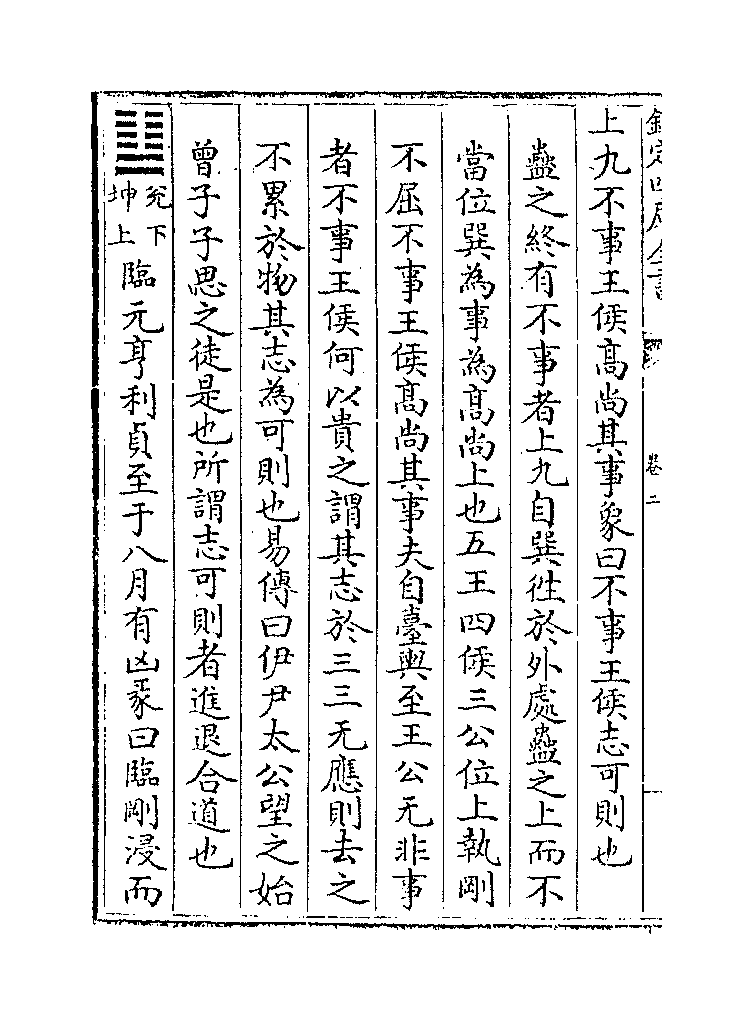 欽定四庫全書
卷二
上九不事王侯髙尚其事象曰不事王侯志可則也
蠱之終有不事者上九自巽徃於外處蠱之上而不
當位巽為事為髙尚上也五王四侯三公位上執剛
不屈不事王侯髙尚其事夫自臺輿至王公无非事
者不事王侯何以貴之謂其志於三三无應則去之
不累於物其志為可則也易傳曰伊尹太公望之始
曾子子思之徒是也所謂志可則者進退合道也
䷒
兊下
坤上
臨元亨利貞至于八月有凶彖曰臨剛浸而